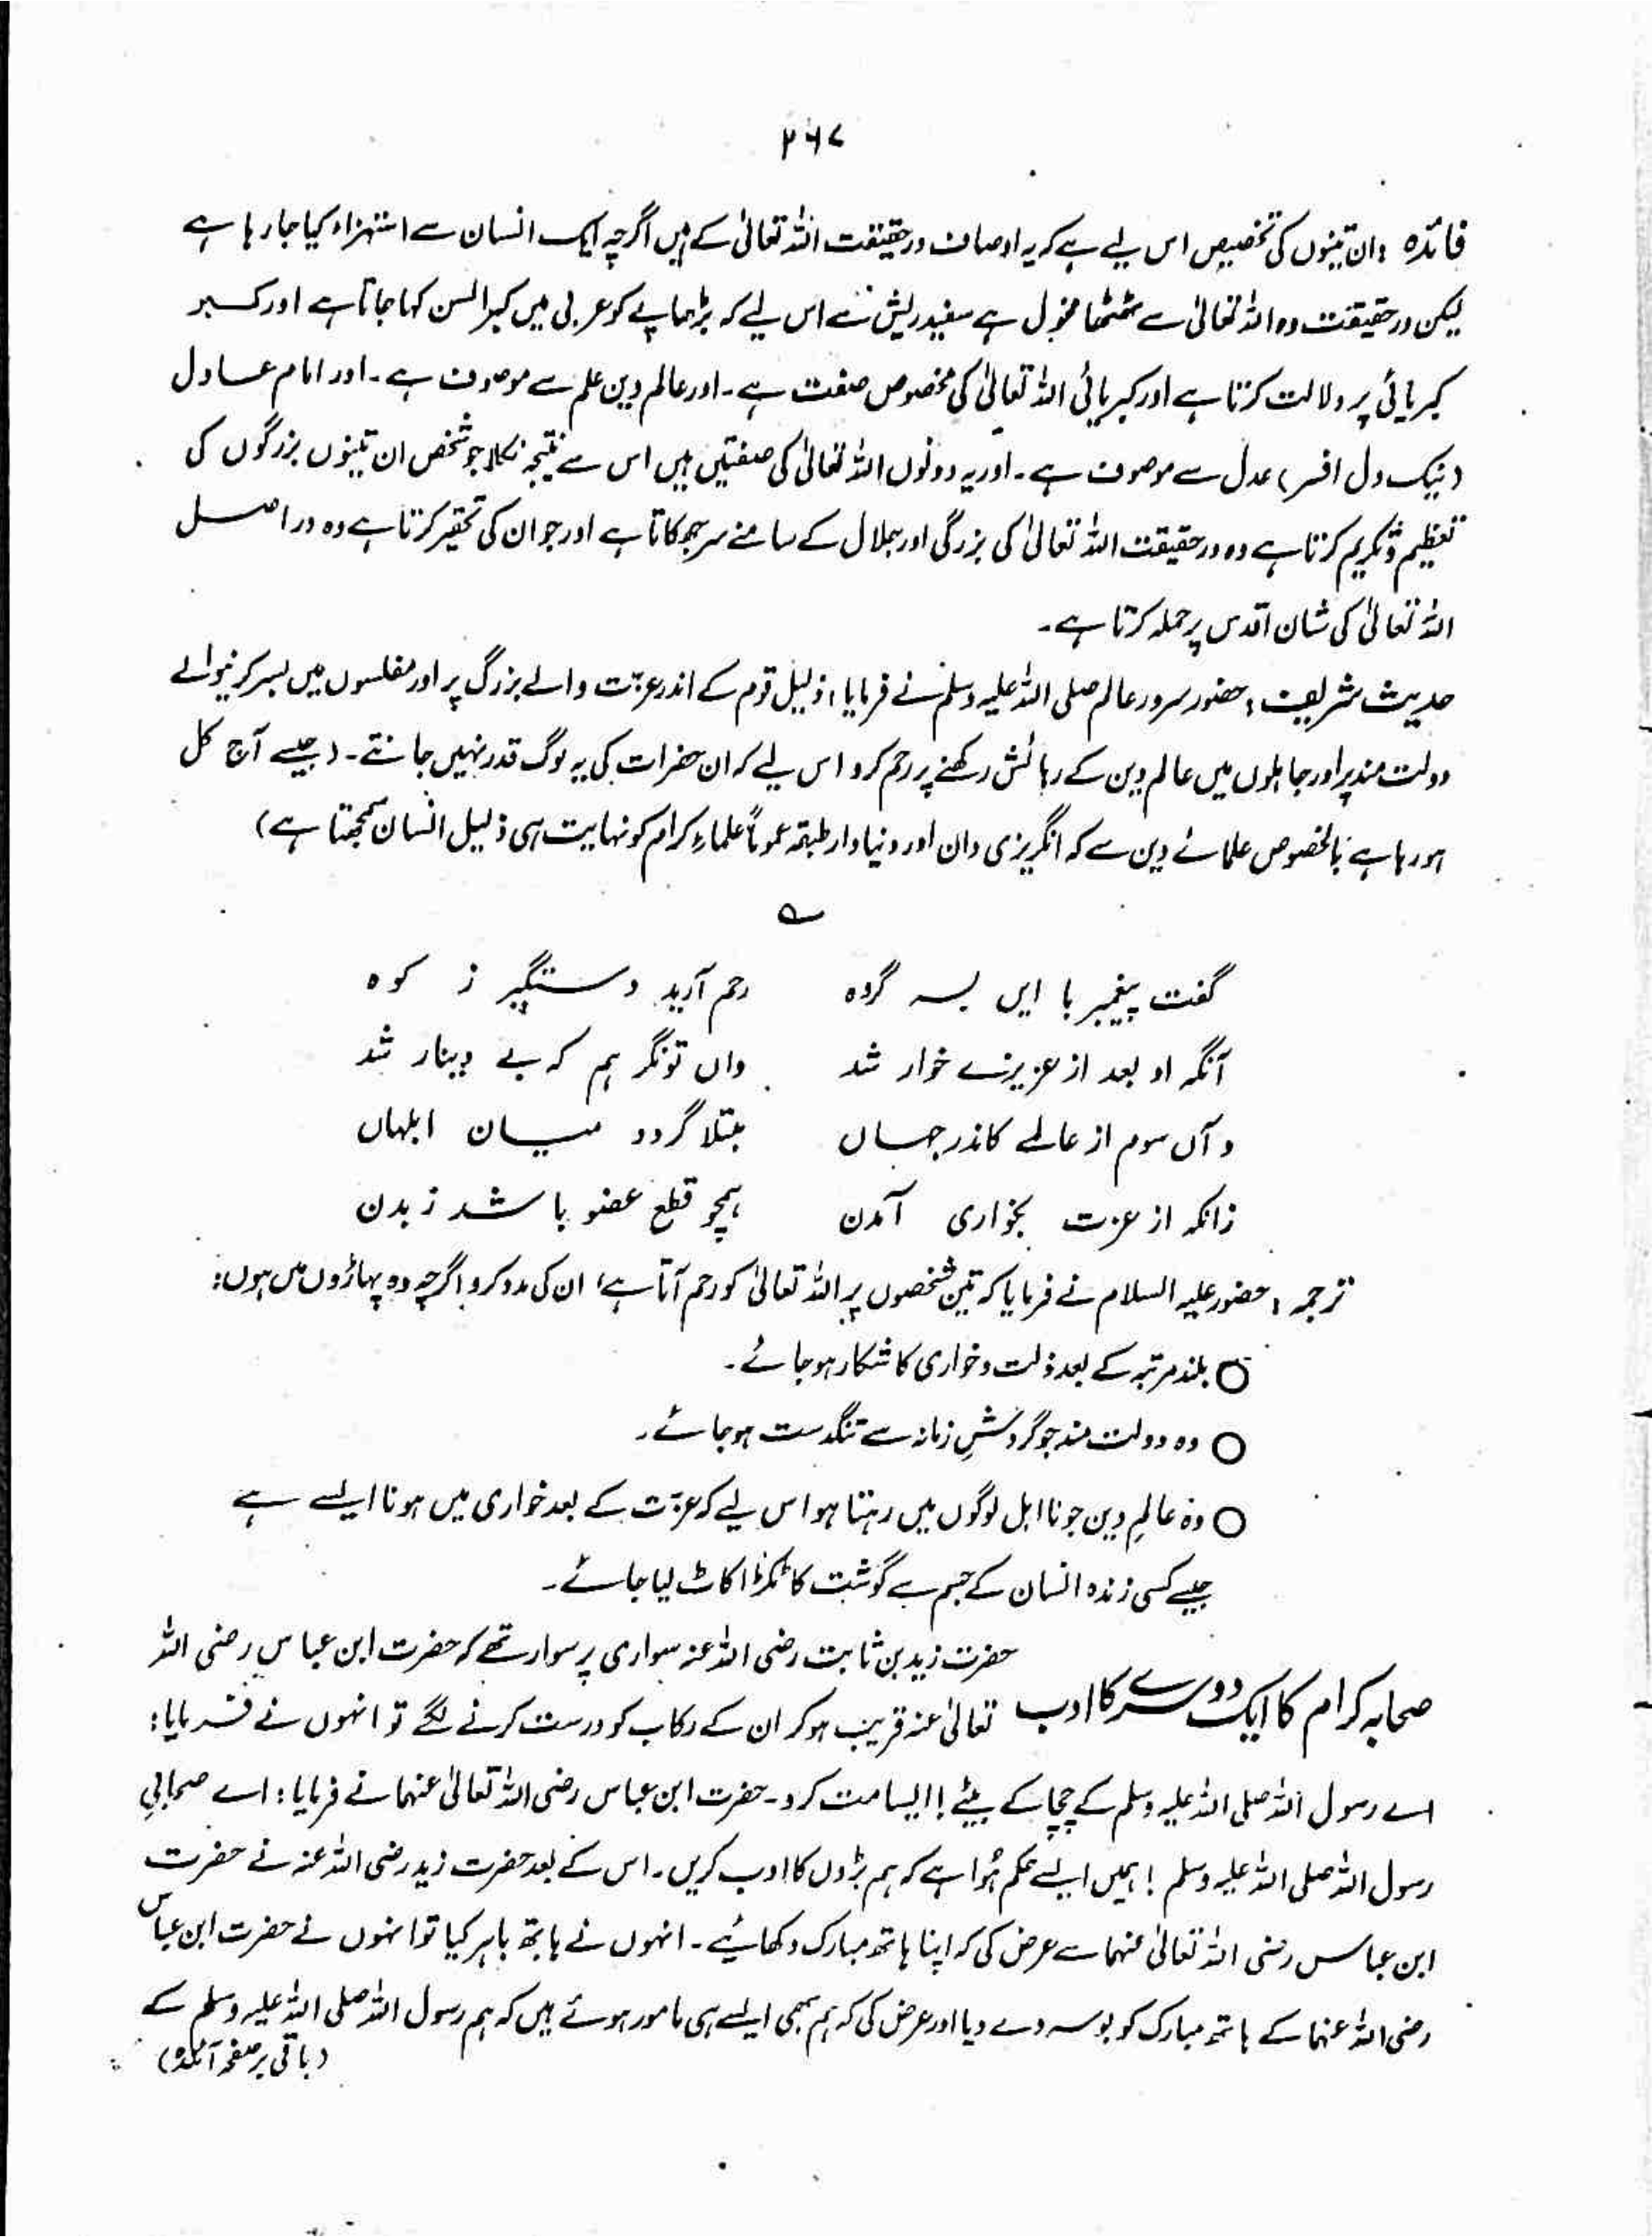 ۲۶۷
فائدہ : ان تینوں کی تخصیص اس لیے ہے کہ یہ اوصاف درحقیقت اللہ تعالیٰ کے ہیں اگرچہ ایک انسان سے استہزاء کیا جا رہا ہے
لیکن درحقیقت وہ اللہ تعالیٰ سے ٹھٹھا مخول ہے سفید ریش سے اس لیے کہ بڑھاپے کو عربی میں کبر السن کہا جاتا ہے اور کبر
کبریائی پر دلالت کرتا ہے اور کبریائی اللہ تعالیٰ کی مخصوص صفت ہے ۔ اور عالم دین علم سے موصوف ہے ۔ اور امام عادل
( نیک دل افسر ) عدل سے موصوف ہے ۔ اور یہ دونوں اللہ تعالیٰ کی صفتیں ہیں اس سے نتیجہ نکلا جو شخص ان تینوں بزرگوں کی
تعظیم و تکریم کرتا ہے وہ درحقیقت اللہ تعالیٰ کی بزرگی اور جلال کے سامنے سر جھکاتا ہے اور جو ان کی تحقیر کرتا ہے وہ دراصل
اللہ تعالیٰ کی شان اقدس پر حملہ کرتا ہے ۔
حدیث شریف : حضور سرور عالم صلی اللہ علیہ وسلم نے فرمایا : ذلیل قوم کے اندر عزت والے بزرگ پر اور مفلسوں میں بسر کرنیوالے
دولت مند پر اور جاہلوں میں عالم دین کے رہائش رکھنے پر رحم کرو اس لیے کہ ان حضرات کی یہ لوگ قدر نہیں جانتے ۔ ( جیسے آج کل
ہو رہا ہے بالخصوص علمائے دین سے کہ انگریزی دان اور دنیا دار طبقہ عموماً علماءِ کرام کو نہایت ہی ذلیل انسان سمجھتا ہے )
؎
گفت پیغمبر با ایں بسہ گروہ رحم آرید دستگیر ز کوہ
آنگہ او بعد از عزیزے خوار شد واں تونگر ہم کہ بے دینار شد
و آں سوم از عالمے کاندر جہاں مبتلا گردد میان ابلہاں
زانکہ از عزت بخواری آمدن ہمچو قطع عضو باشد ز بدن
ترجمہ : حضور علیہ السلام نے فرمایا کہ تین شخصوں پر اللہ تعالیٰ کو رحم آتا ہے ، ان کی مدد کرو اگرچہ وہ پہاڑوں میں ہوں :
○ بلند مرتبہ کے بعد ذلت و خواری کا شکار ہو جائے ۔
○ وہ دولت مند جو گردشِ زمانہ سے تنگدست ہو جائے ۔
○ وہ عالمِ دین جو نااہل لوگوں میں رہتا ہو اس لیے کہ عزت کے بعد خواری میں ہونا ایسے ہے
جیسے کسی زندہ انسان کے جسم سے گوشت کا ٹکڑا کاٹ لیا جائے ۔
حضرت زید بن ثابت رضی اللہ عنہ سواری پر سوار تھے کہ حضرت ابن عباس رضی اللہ
صحابہ کرام کا ایک دوسرے کا ادب تعالیٰ عنہ قریب ہو کر ان کے رکاب کو درست کرنے لگے تو انہوں نے فرمایا :
اے رسول اللہ صلی اللہ علیہ وسلم کے چچا کے بیٹے ! ایسا مت کرو ۔ حضرت ابن عباس رضی اللہ تعالیٰ عنہما نے فرمایا : اے صحابیِ
رسول اللہ صلی اللہ علیہ وسلم ! ہمیں ایسے حکم ہُوا ہے کہ ہم بڑوں کا ادب کریں ۔ اس کے بعد حضرت زید رضی اللہ عنہ نے حضرت
ابن عباس رضی اللہ تعالیٰ عنہما سے عرض کی کہ اپنا ہاتھ مبارک دکھائیے ۔ انہوں نے ہاتھ باہر کیا تو انہوں نے حضرت ابن عباس
رضی اللہ عنہما کے ہاتھ مبارک کو بوسہ دے دیا اور عرض کی کہ ہم بھی ایسے ہی مامور ہوئے ہیں کہ ہم رسول اللہ صلی اللہ علیہ وسلم کے
( باقی بر صفحہ آئندہ )